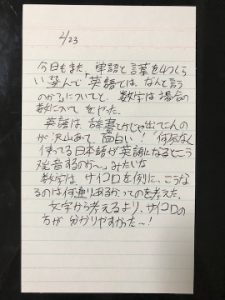 2/23
今日もまた、単語と言葉を4つくら
い選んで「英語では、なんと言う
のか？」についてと、数学は場合の
数についてをやった。
英語は、辞書で出てこんの
が沢山あって面白い！何気なく
使ってる日本語が英語になるとこう
発音するのか〜みたいな
数学は、サイコロを例に、こうな
るのは何通りあるかってのを考えた。
文字から考えるより、サイコロの
方が分かりやすかった〜！